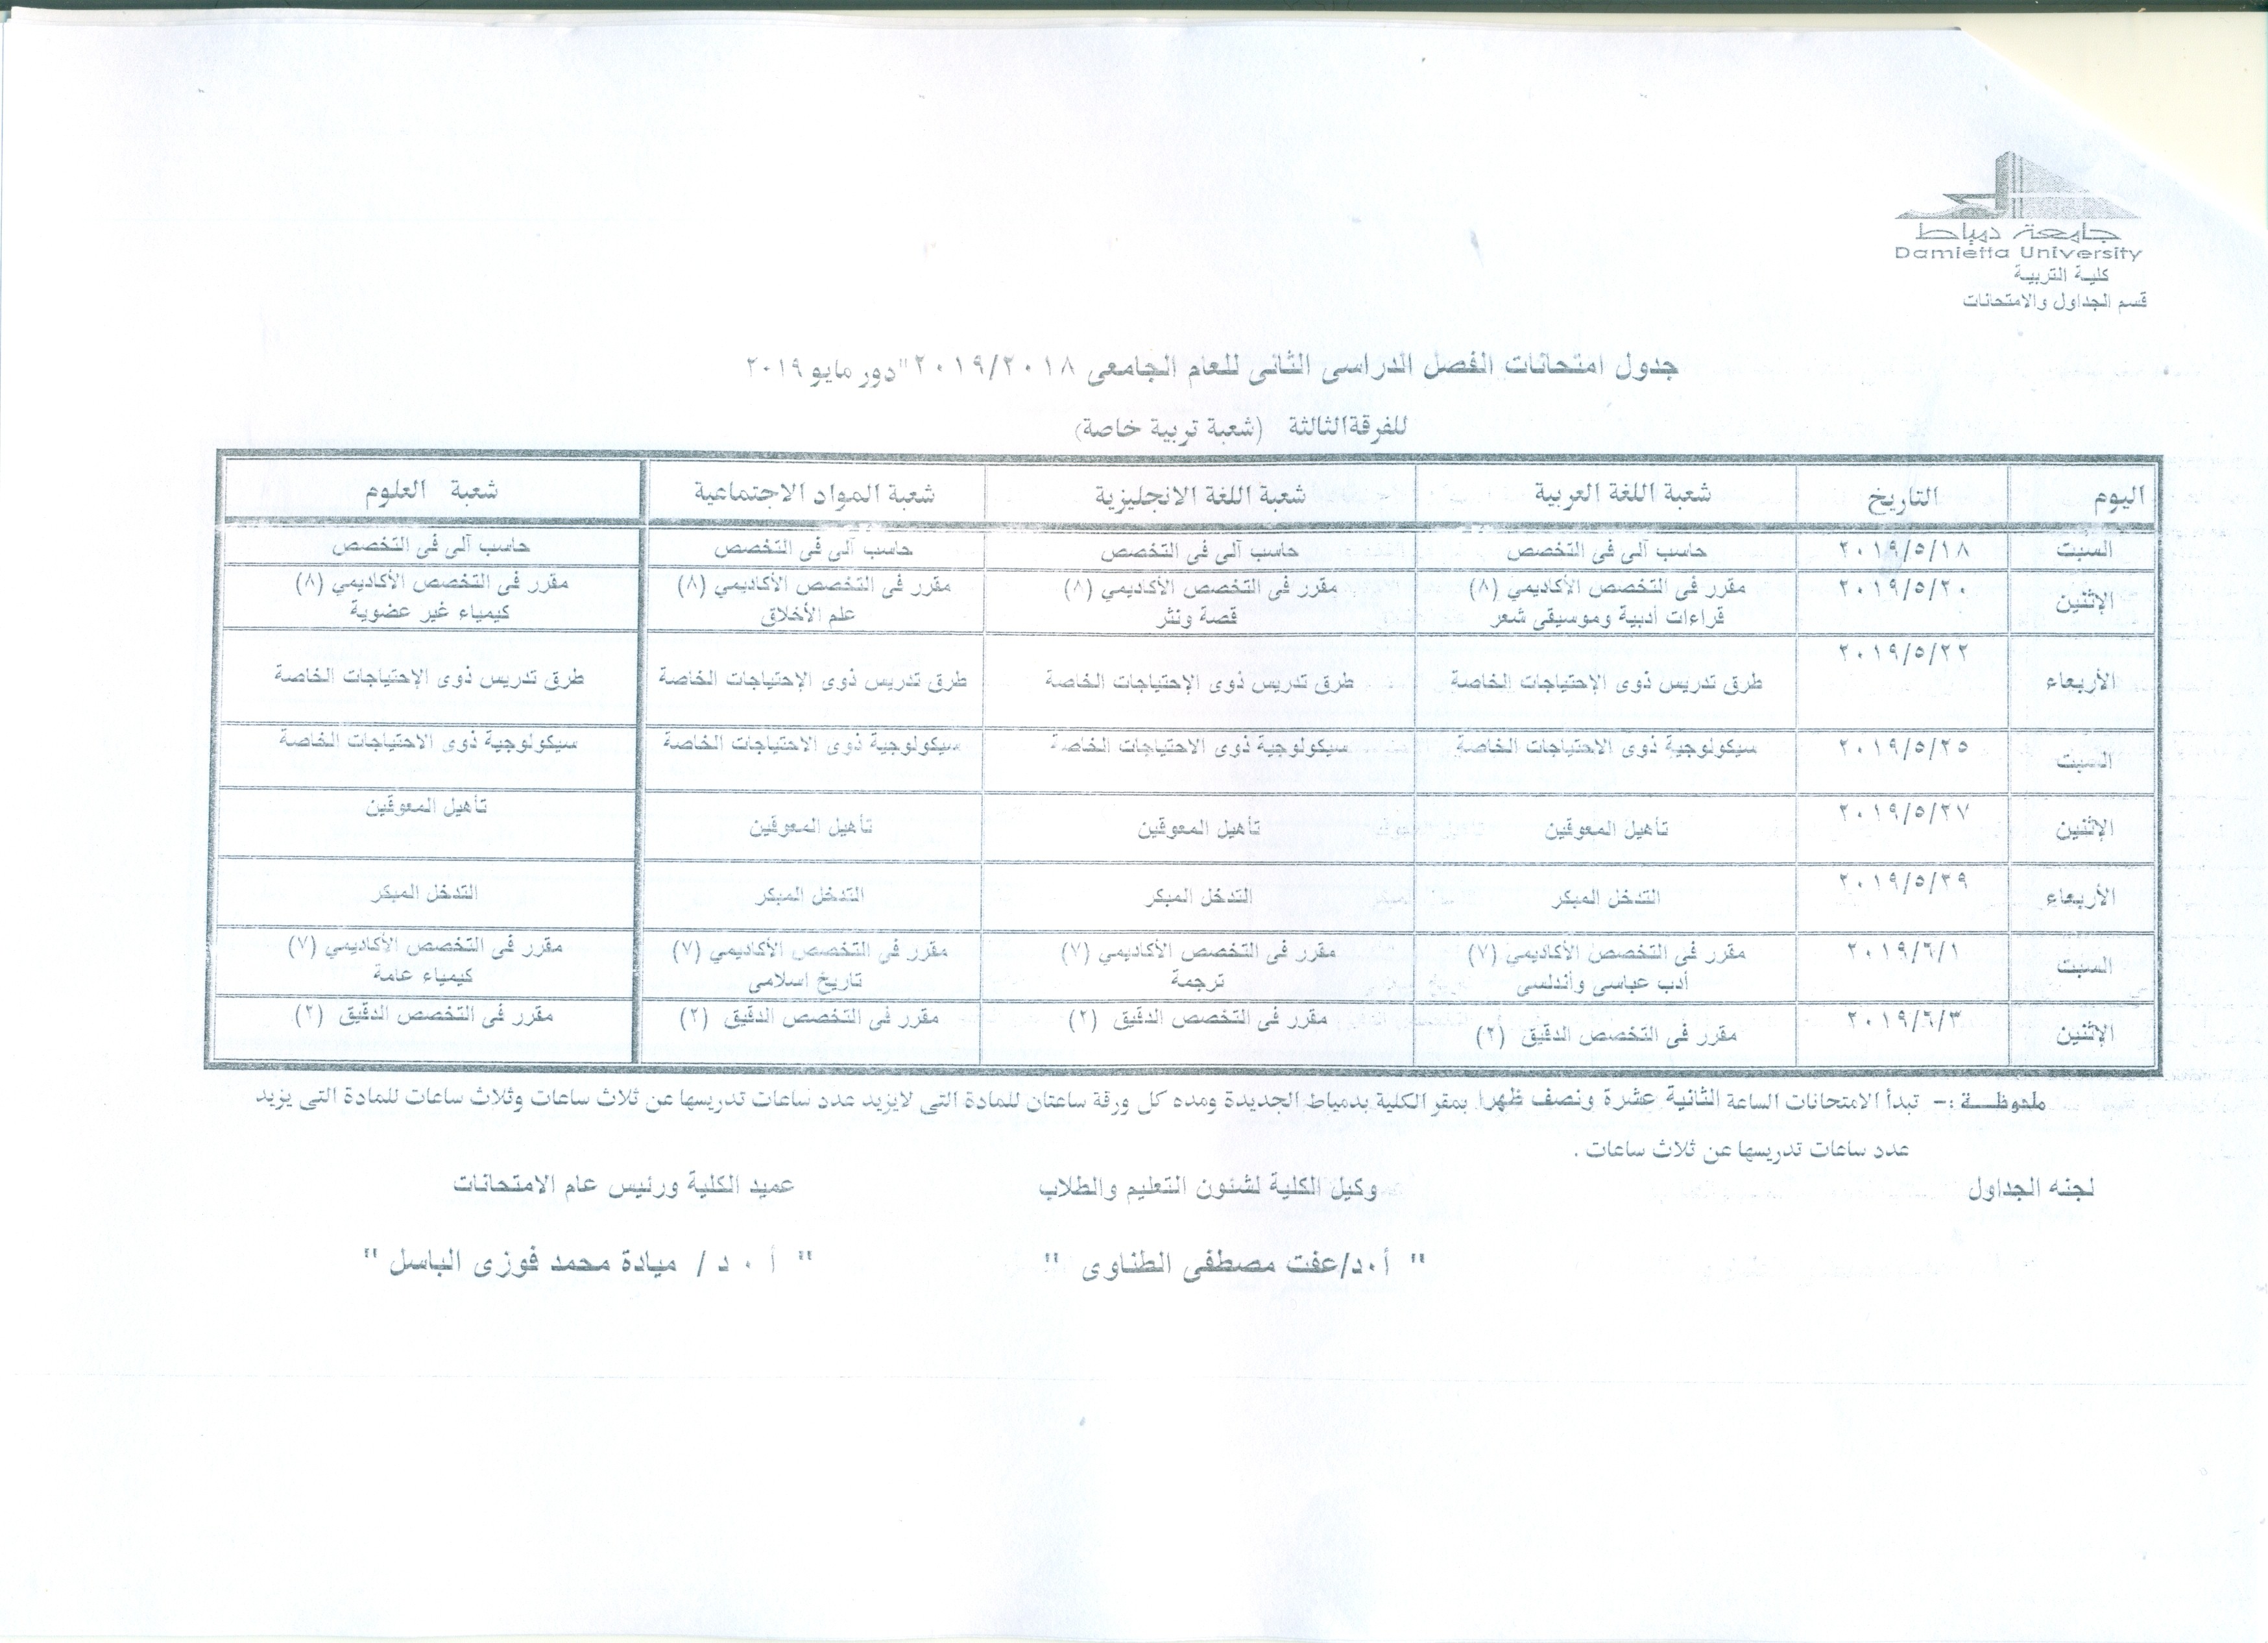 جامعة دمياط
Damietta University
كلية التربية
قسم الجداول والامتحانات
جدول امتحانات الفصل الدراسى الثانى للعام الجامعى ٢٠١٩/٢٠١٨ "دور مايو ٢٠١٩
للفرقةالثالثة (شعبة تربية خاصة)
اليوم التاريخ شعبة اللغة العربية شعبة اللغة الانجليزية شعبة المواد الاجتماعية شعبة العلوم
السبت ٢٠١٩/٥/١٨ حاسب آلى فى التخصص حاسب آلى فى التخصص حاسب آلى فى التخصص حاسب آلى فى التخصص
الإثنين ٢٠١٩/٥/٢٠ مقرر فى التخصص الأكاديمي (٨) مقرر فى التخصص الأكاديمي (٨) مقرر فى التخصص الأكاديمي (٨) مقرر فى التخصص الأكاديمي (٨)
قراءات أدبية وموسيقى شعر قصة ونثر علم الأخلاق كيمياء غير عضوية
الأربعاء ٢٠١٩/٥/٢٢ طرق تدريس ذوى الإحتياجات الخاصة طرق تدريس ذوى الإحتياجات الخاصة طرق تدريس ذوى الإحتياجات الخاصة طرق تدريس ذوى الإحتياجات الخاصة
السبت ٢٠١٩/٥/٢٥ سيكولوجية ذوى الاحتياجات الخاصة سيكولوجية ذوى الاحتياجات الخاصة سيكولوجية ذوى الاحتياجات الخاصة سيكولوجية ذوى الاحتياجات الخاصة
الإثنين ٢٠١٩/٥/٢٧ تأهيل المعوقين تأهيل المعوقين تأهيل المعوقين تأهيل المعوقين
الأربعاء ٢٠١٩/٥/٢٩ التدخل المبكر التدخل المبكر التدخل المبكر التدخل المبكر
السبت ٢٠١٩/٦/١ مقرر فى التخصص الأكاديمي (٧) مقرر فى التخصص الأكاديمي (٧) مقرر فى التخصص الأكاديمي (٧) مقرر فى التخصص الأكاديمي (٧)
أدب عباسى وأندلسى ترجمة تاريخ اسلامى كيمياء عامة
الإثنين ٢٠١٩/٦/٣ مقرر فى التخصص الدقيق (٢) مقرر فى التخصص الدقيق (٢) مقرر فى التخصص الدقيق (٢) مقرر فى التخصص الدقيق (٢)
ملحوظة :- تبدأ الامتحانات الساعة الثانية عشرة ونصف ظهرا بمقر الكلية بدمياط الجديدة ومده كل ورقة ساعتان للمادة التى لايزيد عدد ساعات تدريسها عن ثلاث ساعات وثلاث ساعات للمادة التى يزيد
عدد ساعات تدريسها عن ثلاث ساعات .
لجنه الجداول وكيل الكلية لشئون التعليم والطلاب عميد الكلية ورئيس عام الامتحانات
" أ٠د/عفت مصطفى الطناوى " " أ ٠ د / ميادة محمد فوزى الباسل "